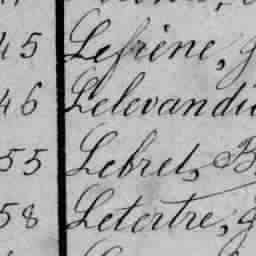 45 Lefrène, G
46 Lelevandi
55 Lebret, B
58 Letertre, G